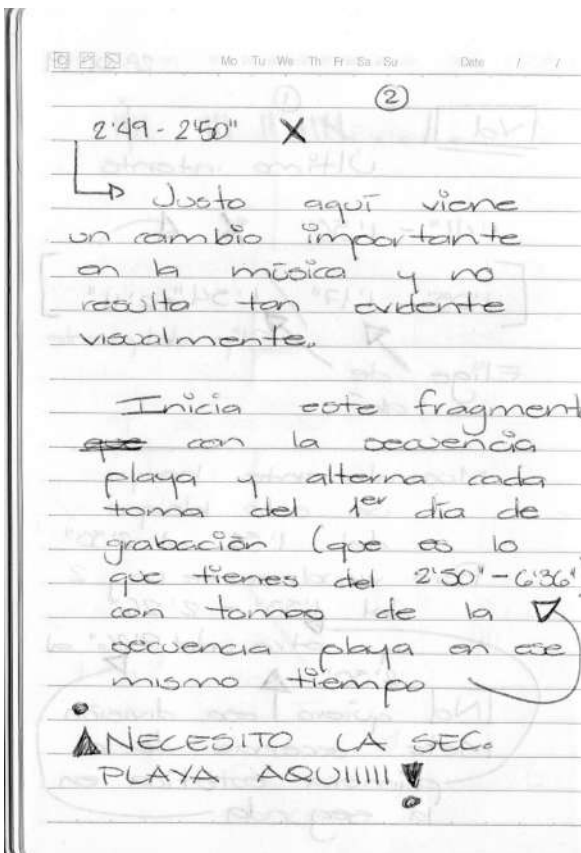 Mo Tu We Th Fr Sa Su Date / /
②
2'49 - 2'50" X
Justo aquí viene
un cambio importante
en la música y no
resulta tan evidente
visualmente.
Inicia este fragment
que con la secuencia
playa y alterna cada
toma del 1er día de
grabación (que es lo
que tienes del 2'50" - 6'36"
con tomas de la
secuencia playa en ese
mismo tiempo
¡NECESITO LA SEC.
PLAYA AQUIIIII!